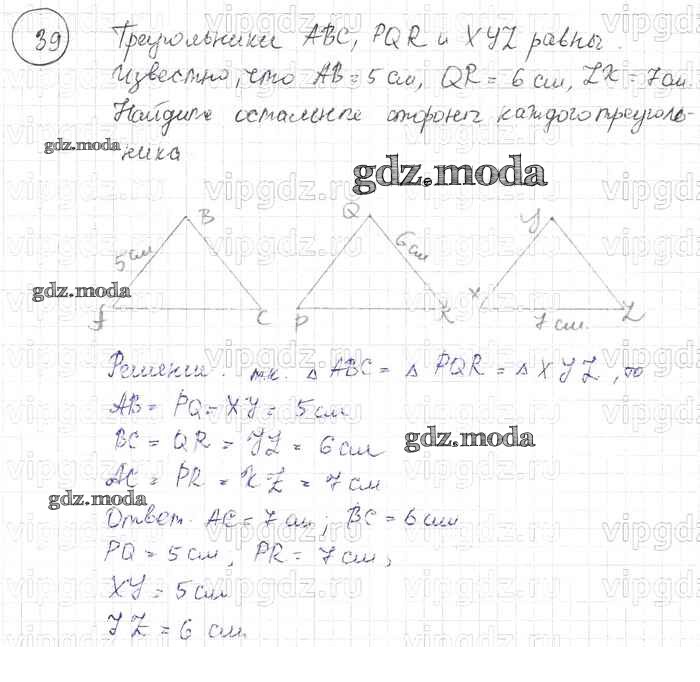 39
Треугольники ABC, PQR и XYZ равны.
Известно, что AB = 5 см, QR = 6 см, ZX = 7 см.
Найдите остальные стороны каждого треуголь-
ника
gdz.moda
gdz.moda
B
Q
Y
5 см
6 см
gdz.moda
A
C
P
R
X
Z
7 см.
Решение. т.к. △ ABC = △ PQR = △ XYZ, то
AB = PQ = XY = 5 см
BC = QR = YZ = 6 см
gdz.moda
AC = PR = XZ = 7 см
gdz.moda
Ответ. AC = 7 см; BC = 6 см
PQ = 5 см, PR = 7 см,
XY = 5 см
YZ = 6 см.
vipgdz.ru